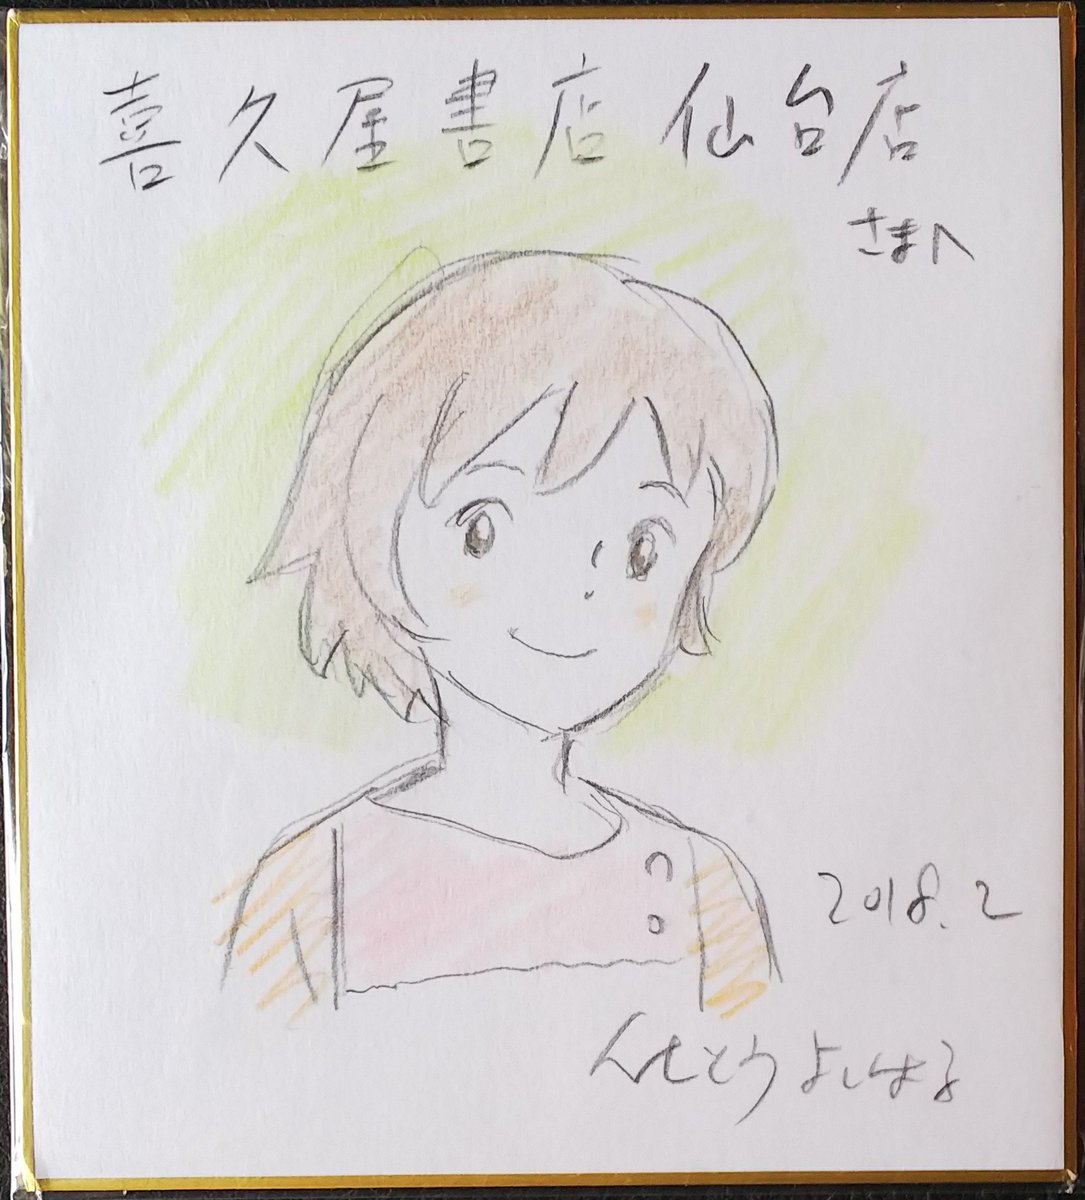 喜久屋書店仙台店
さまへ
2018.2
さとうよしはる